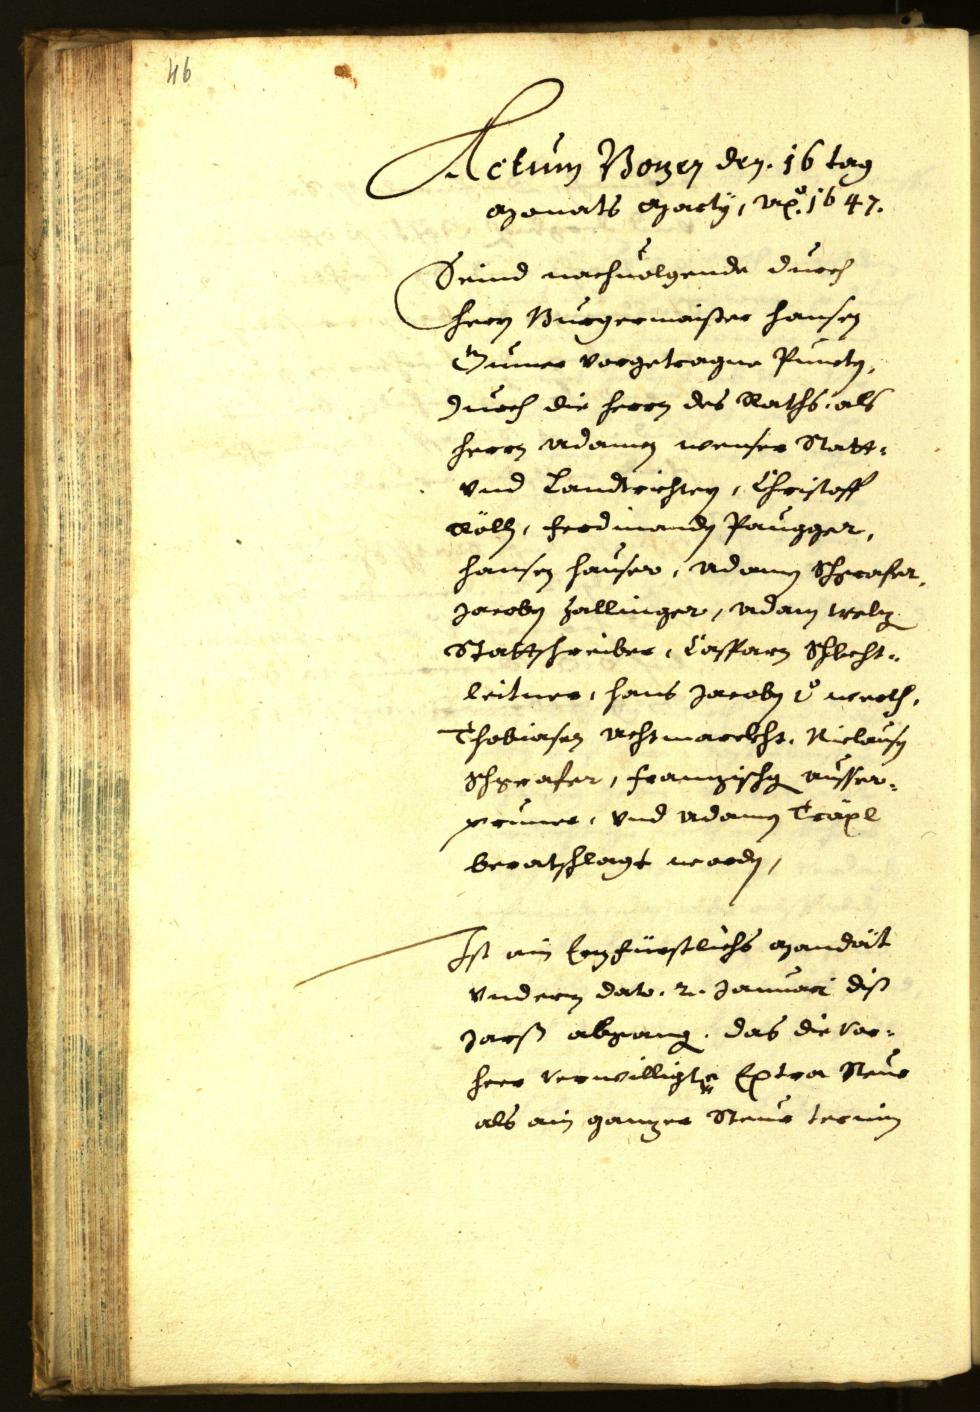 46
Actum Bozen den. 16 tag
Monats Marty, Aõ. 1647.
Seind nachuolgende durch
Herrn Burgermaister Hansen
Gumer vorgetragne Puncten,
durch die Herrn des Raths. als
Herrn Adamen Wenser Statt-
vnd Landtrichtern, Christoff
Röll, Ferdinanden Paugger,
Hansen Hauser, Adamen Schgrafer,
Jacoben Zallinger, Adam Weltz
Stattschreiber, Casparn Schlecht-
leitner, Hans Jacoben v Werth,
Thobiasen Achtmarckht. Niclausen
Schgrafer, Franzischg Ausser-
prunner, vnd Adamen Träxl
beratschlagt worden,
Ist ain Erzfürstlichs Mandät
vndern dato. 2. Januari diß
Jarß abgang. das die vor-
heer verwilligte Extra Steur
als ain ganzer Steur termin